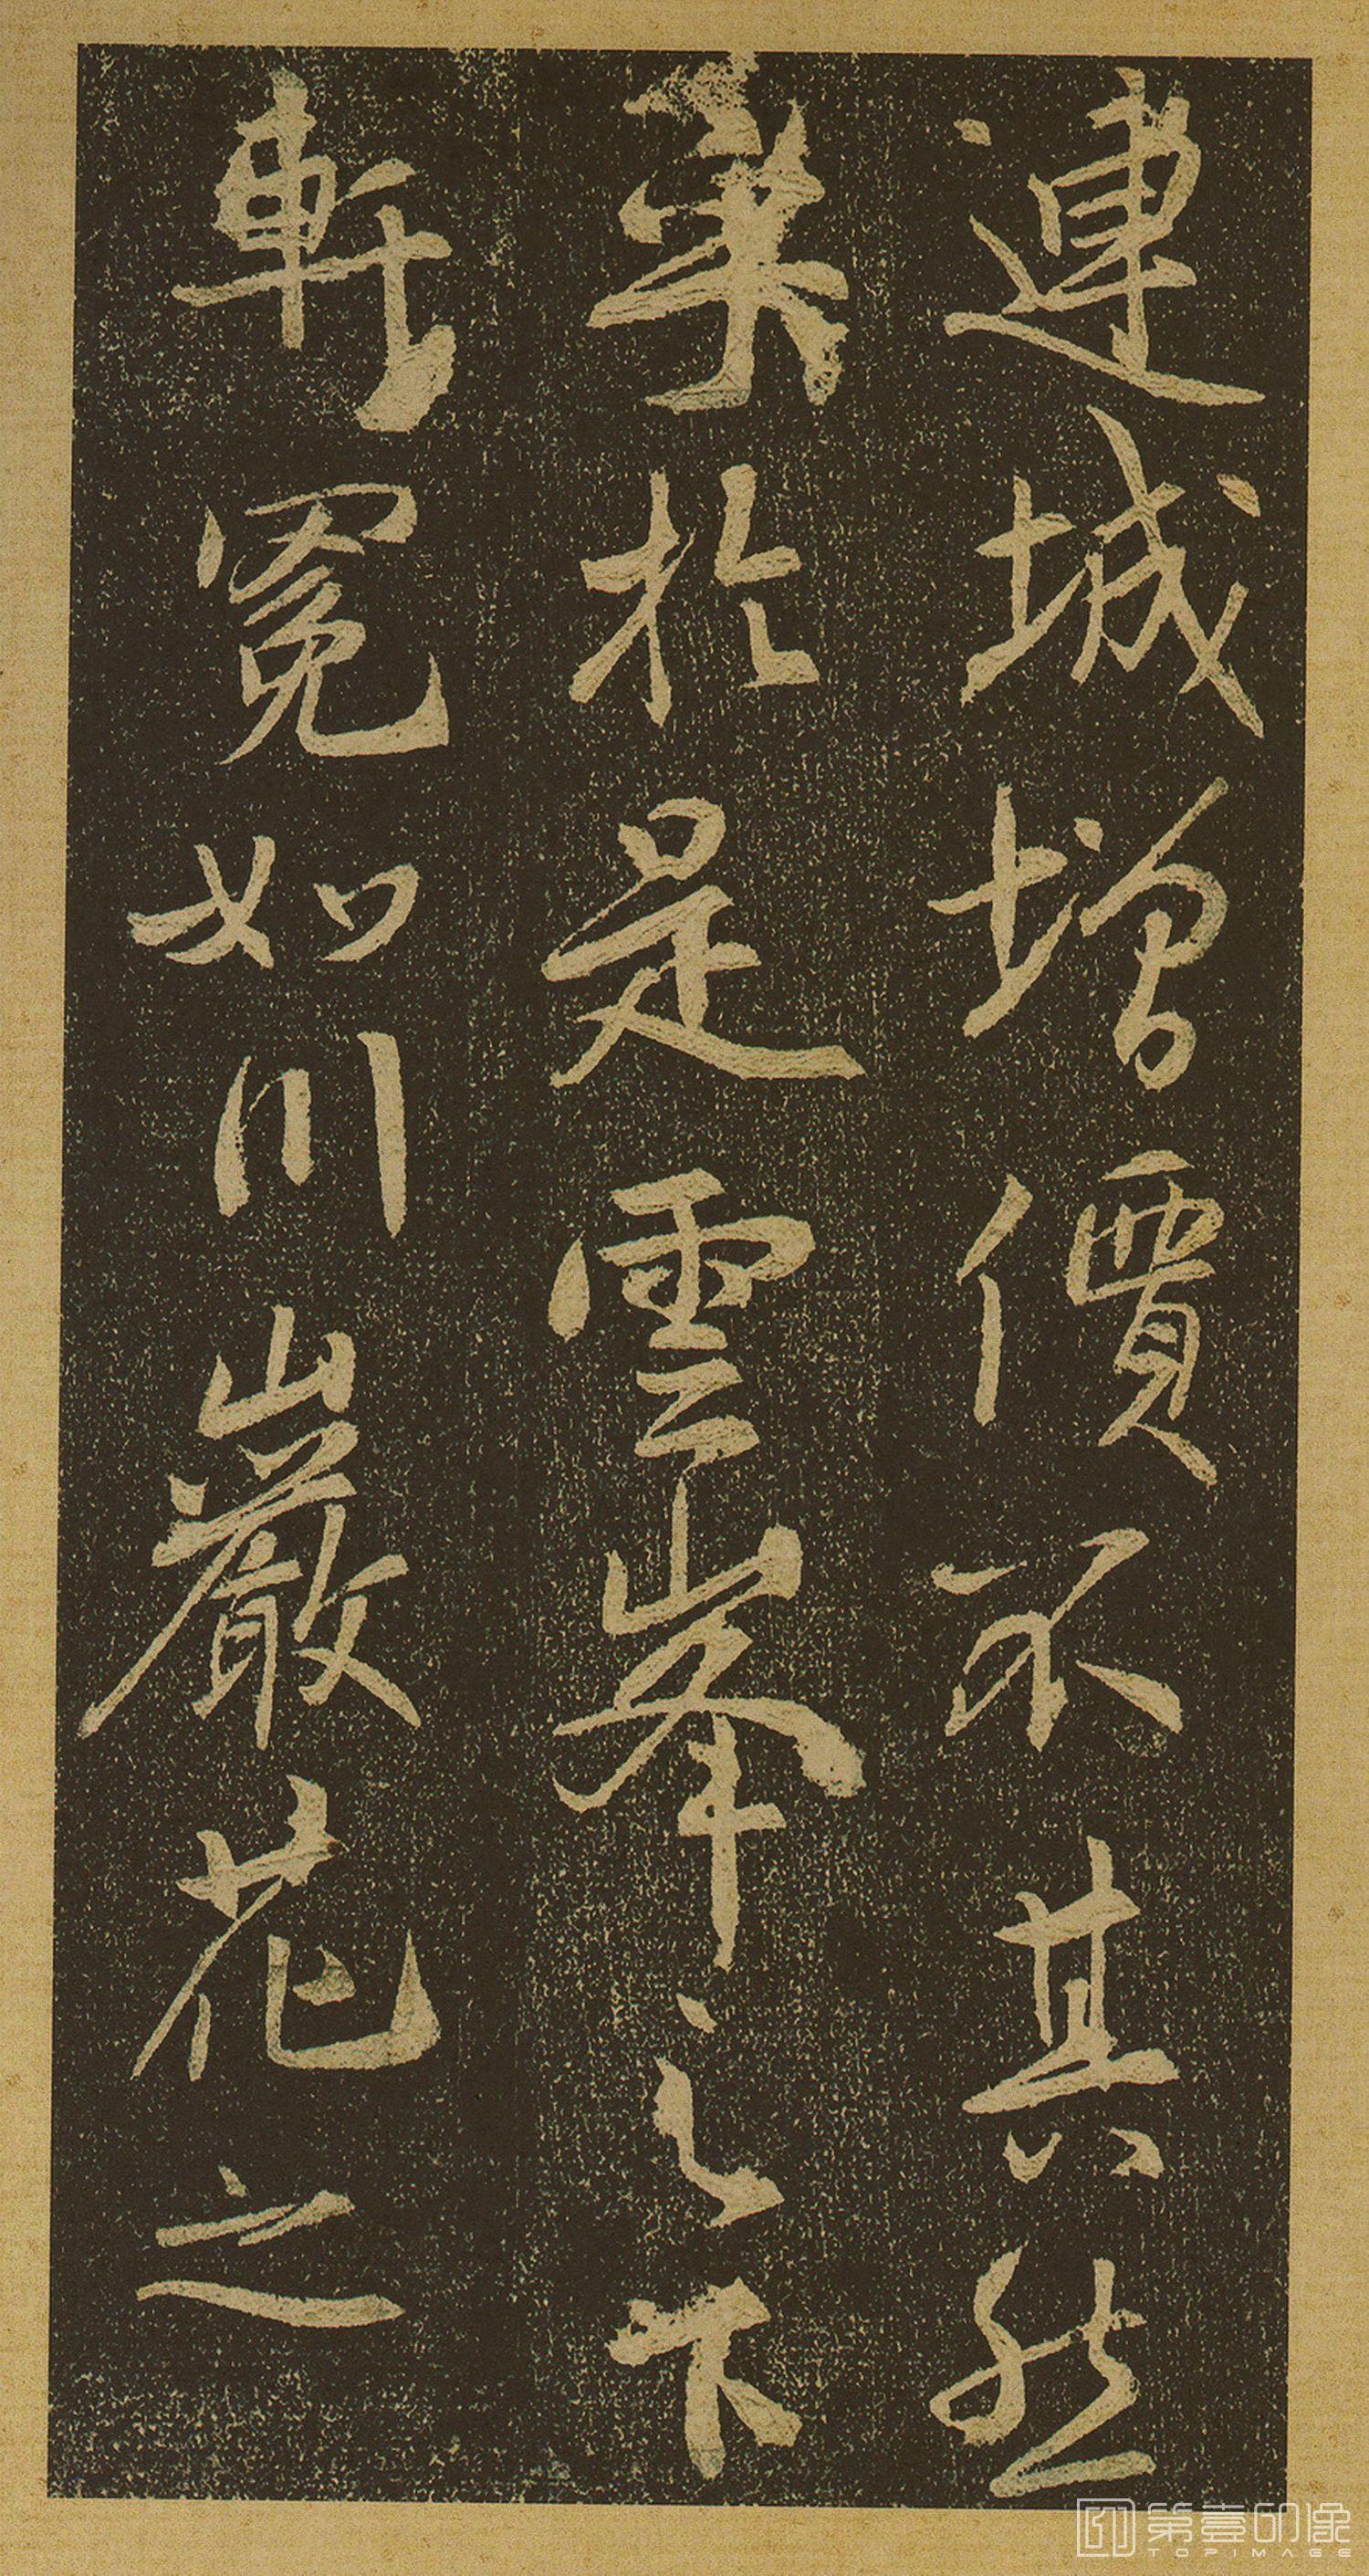 連城增價不其然
於是雲峯之下
軒冕如川巖花之
第壹印像
TOPIMAGE